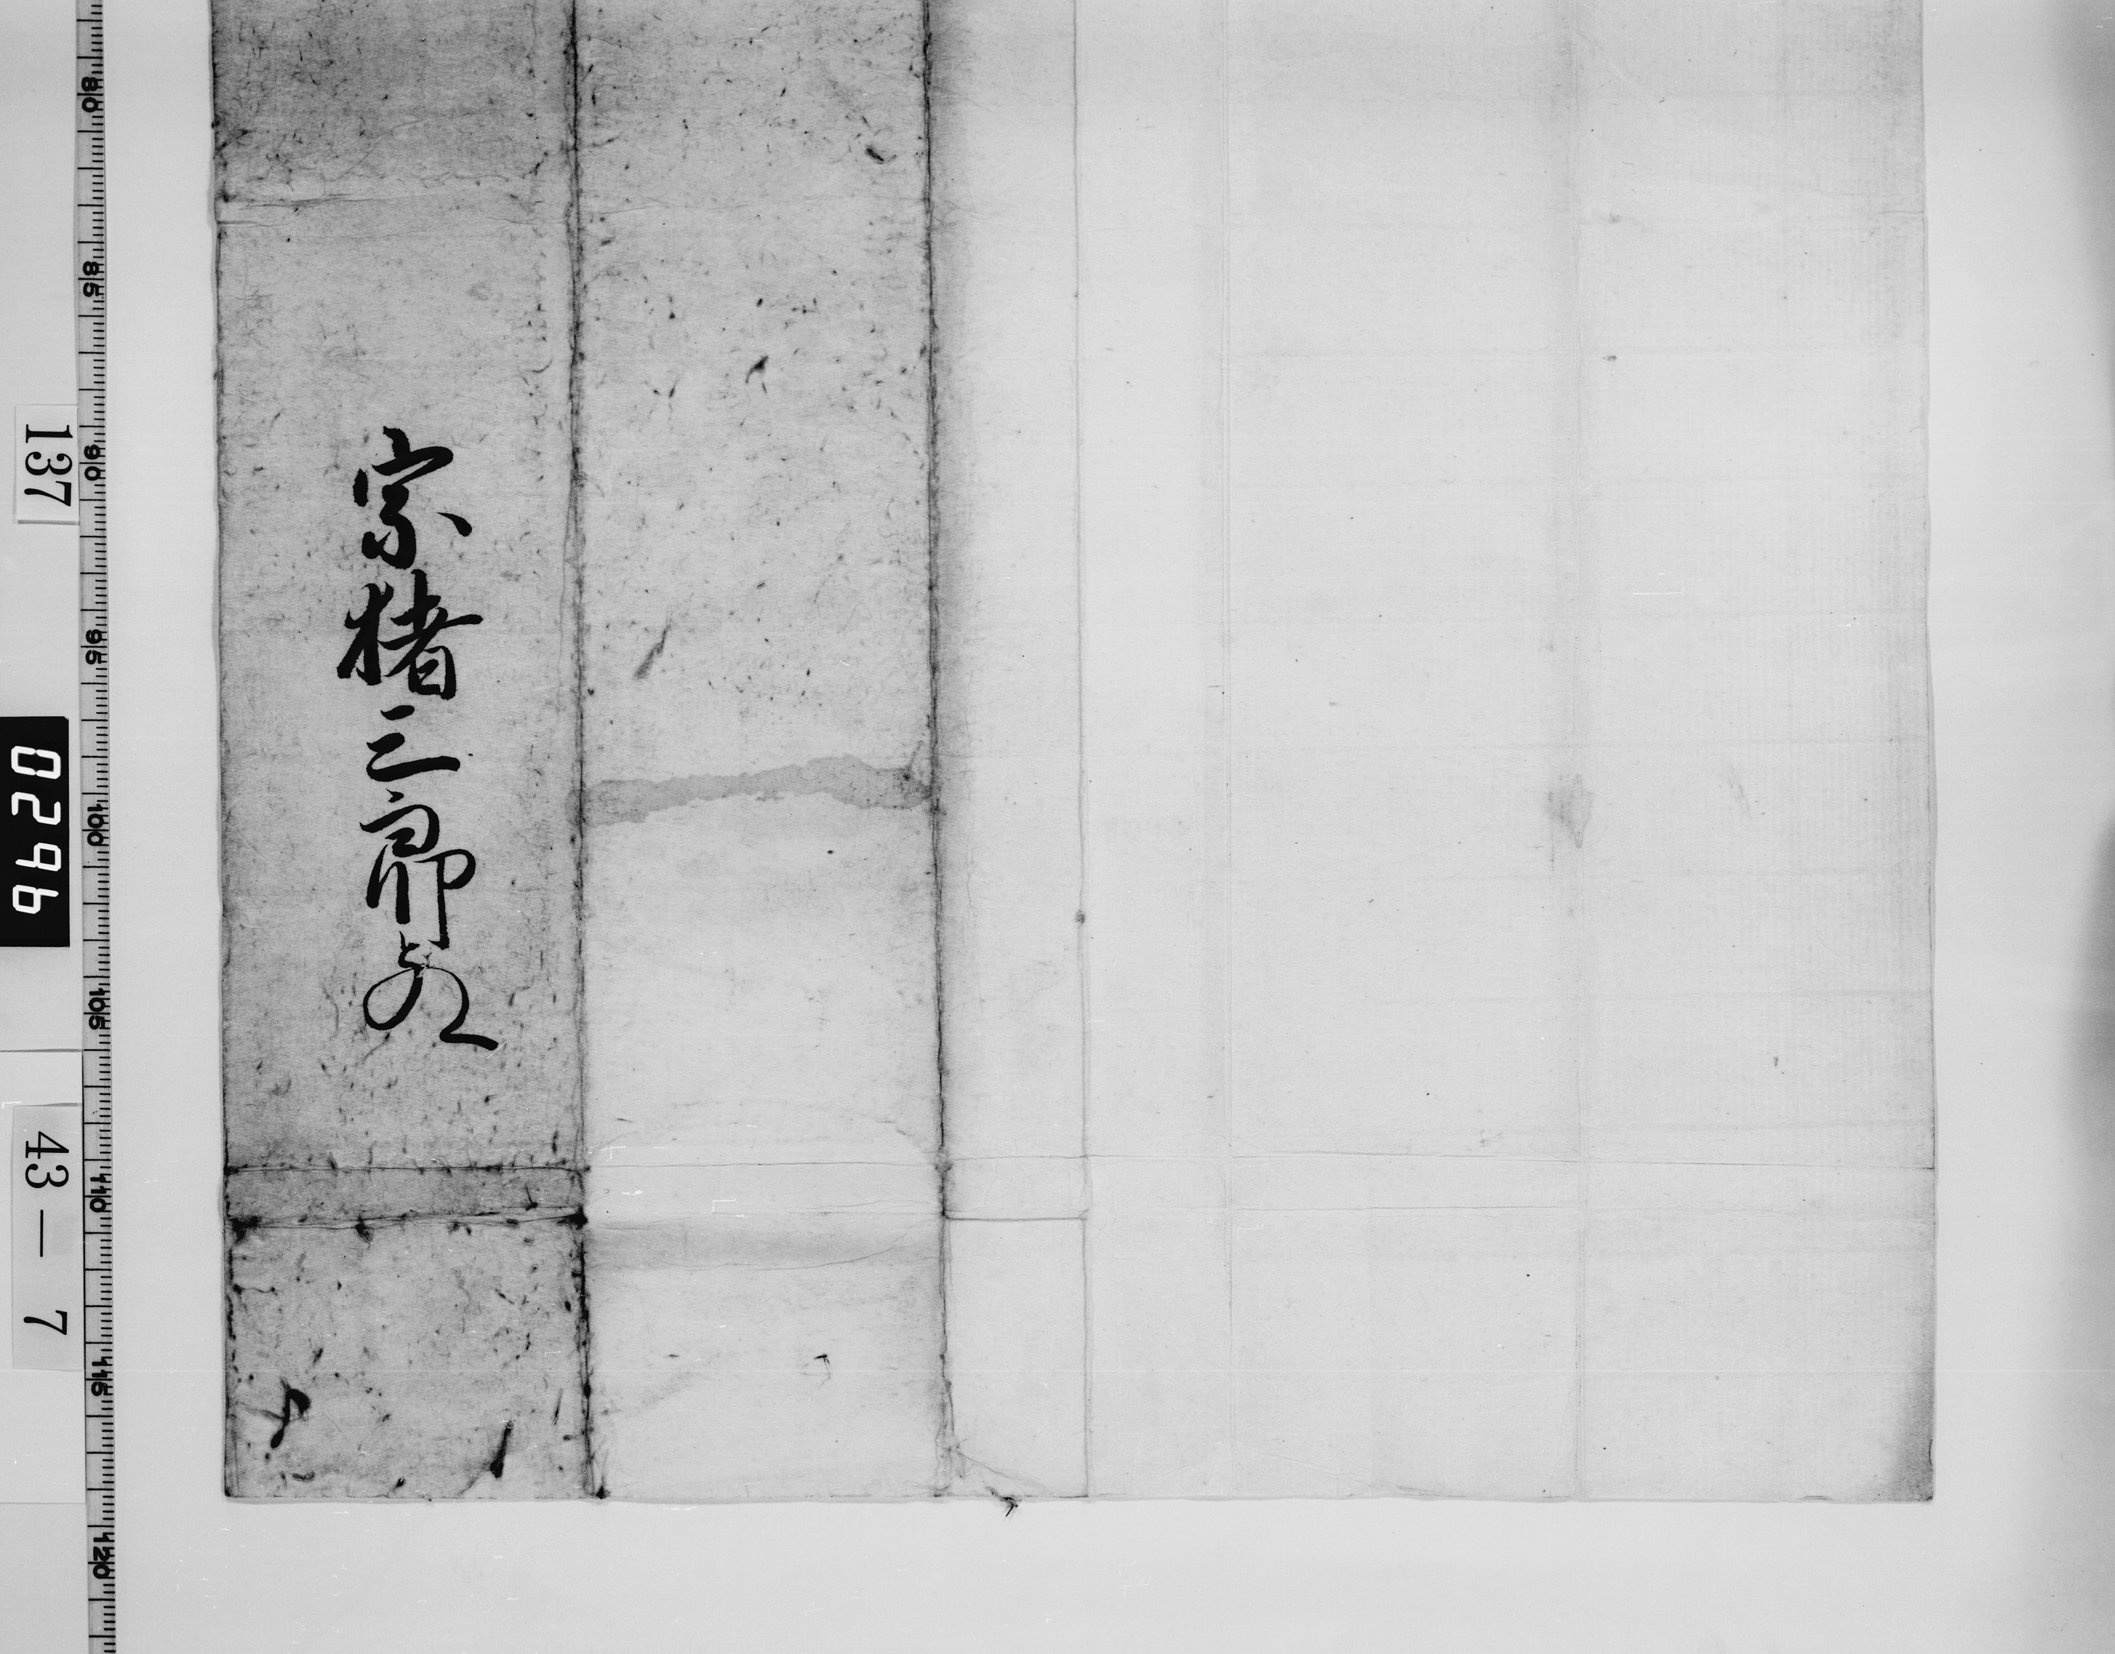 宗猪三郎殿
137
0296
43－7
80
85
90
95
100
105
110
115
120